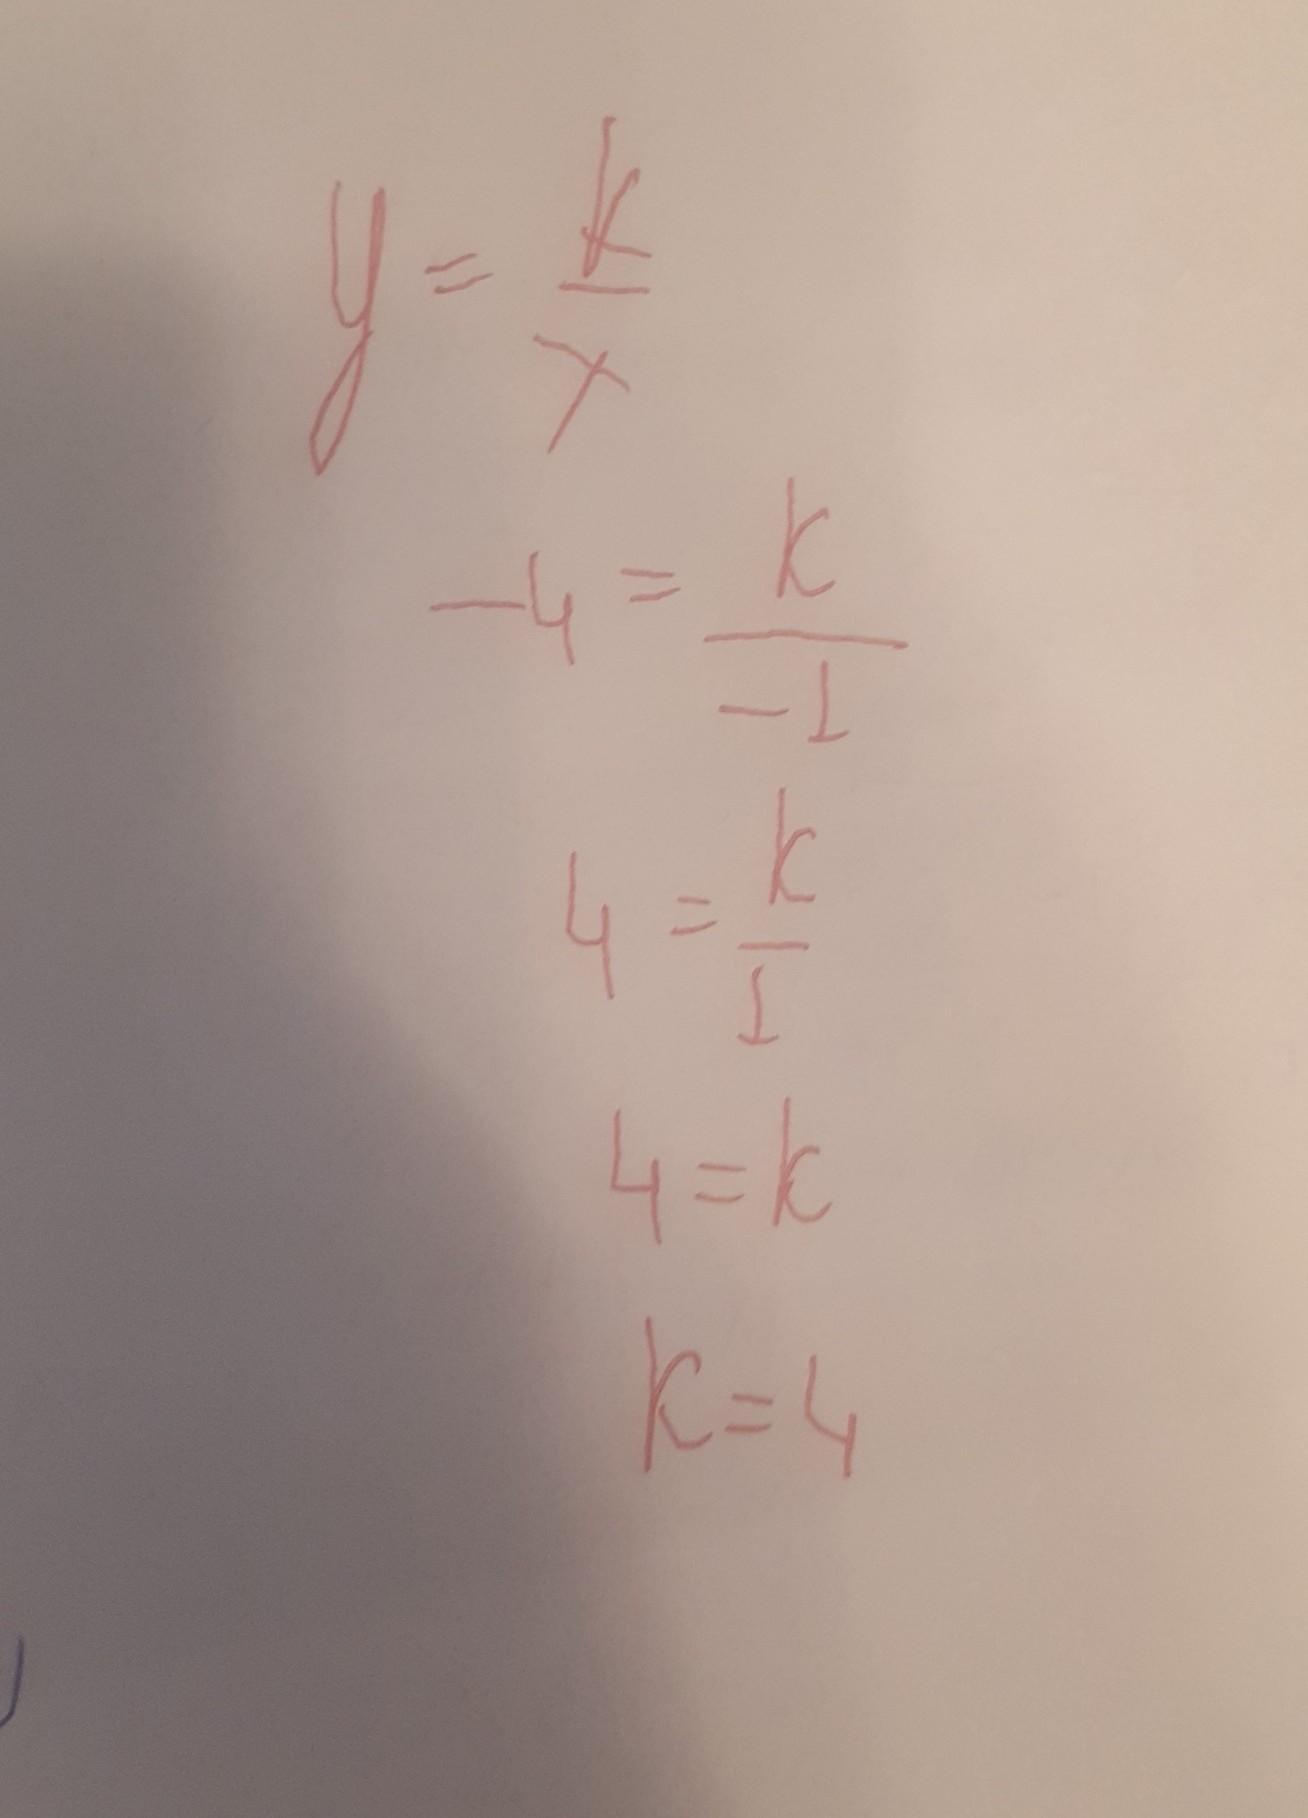 y = k/x
-4 = k/-1
4 = k/1
4 = k
k = 4